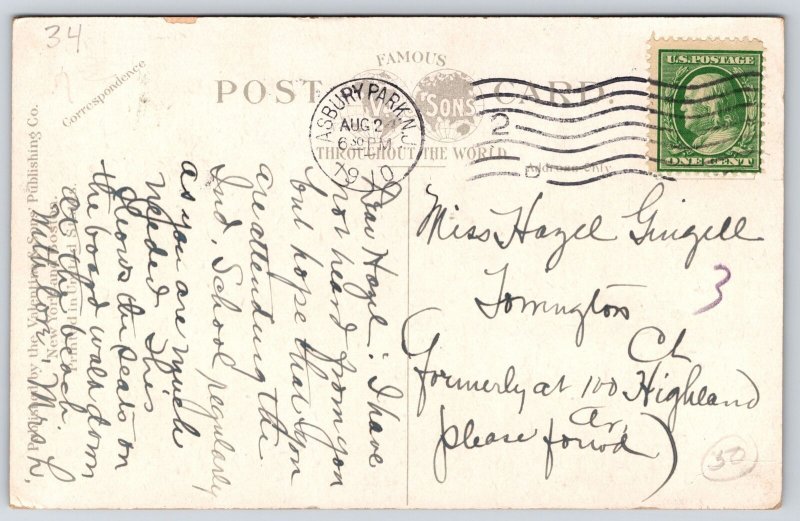 34
FAMOUS
POST CARD.
"SONS
THROUGHOUT THE WORLD
Address only
Correspondence
Published by the Valentine & Sons Publishing Co.
New York and Boston
Printed in
ASBURY PARK, N.J.
AUG 2
6 30 PM
1910
2
U.S. POSTAGE
ONE CENT
Dear Hazel: I have
not heard from you
but hope that you
are attending the
Ind. School regularly
as you are much
needed. This
shows the seats on
the board walk down
at the beach.
Mrs L.
Miss Hazel Gingell
Torrington
Ct
(formerly at 100 Highland
Av.
please forwd)
3
30